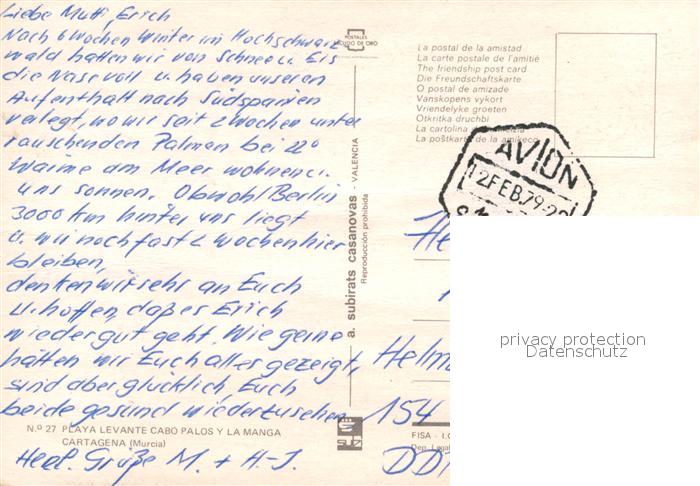 Liebe Mutti, Erich
Nach 6 Wochen Winter im Hochschwarz
wald hatten wir von Schnee u. Eis
die Nase voll u. haben unseren
Aufenthalt nach Südspanien
verlegt, wo wir seit 2 Wochen unter
rauschenden Palmen bei 22°
Wärme am Meer wohnen u.
uns sonnen. Obwohl Berlin
3000 km hinter uns liegt
u. wir noch fast 2 Wochen hier
bleiben,
denken wir sehr an Euch
u. hoffen, daß es Erich
wieder gut geht. Wie gerne
hätten wir Euch alles gezeigt,
sind aber glücklich, Euch
beide gesund wiederzusehen.
N.º 27 PLAYA LEVANTE CABO PALOS Y LA MANGA
CARTAGENA (Murcia)
Herzl. Grüße M. + H.-J.
POSTALES
ESCUDO DE ORO
a. subirats casanovas - VALENCIA
Reproducción prohibida
La postal de la amistad
La carte postale de l'amitié
The friendship post card
Die Freundschaftskarte
O postal de amizade
Vanskopens vykort
Vriendelyke groeten
Otkritka druchbi
La cartolina
La poštkarto de la amikeco
AVION
12 FEB. 79
He
Helm
154
FISA - I.G
Dep. Legal
DD
privacy protection
Datenschutz